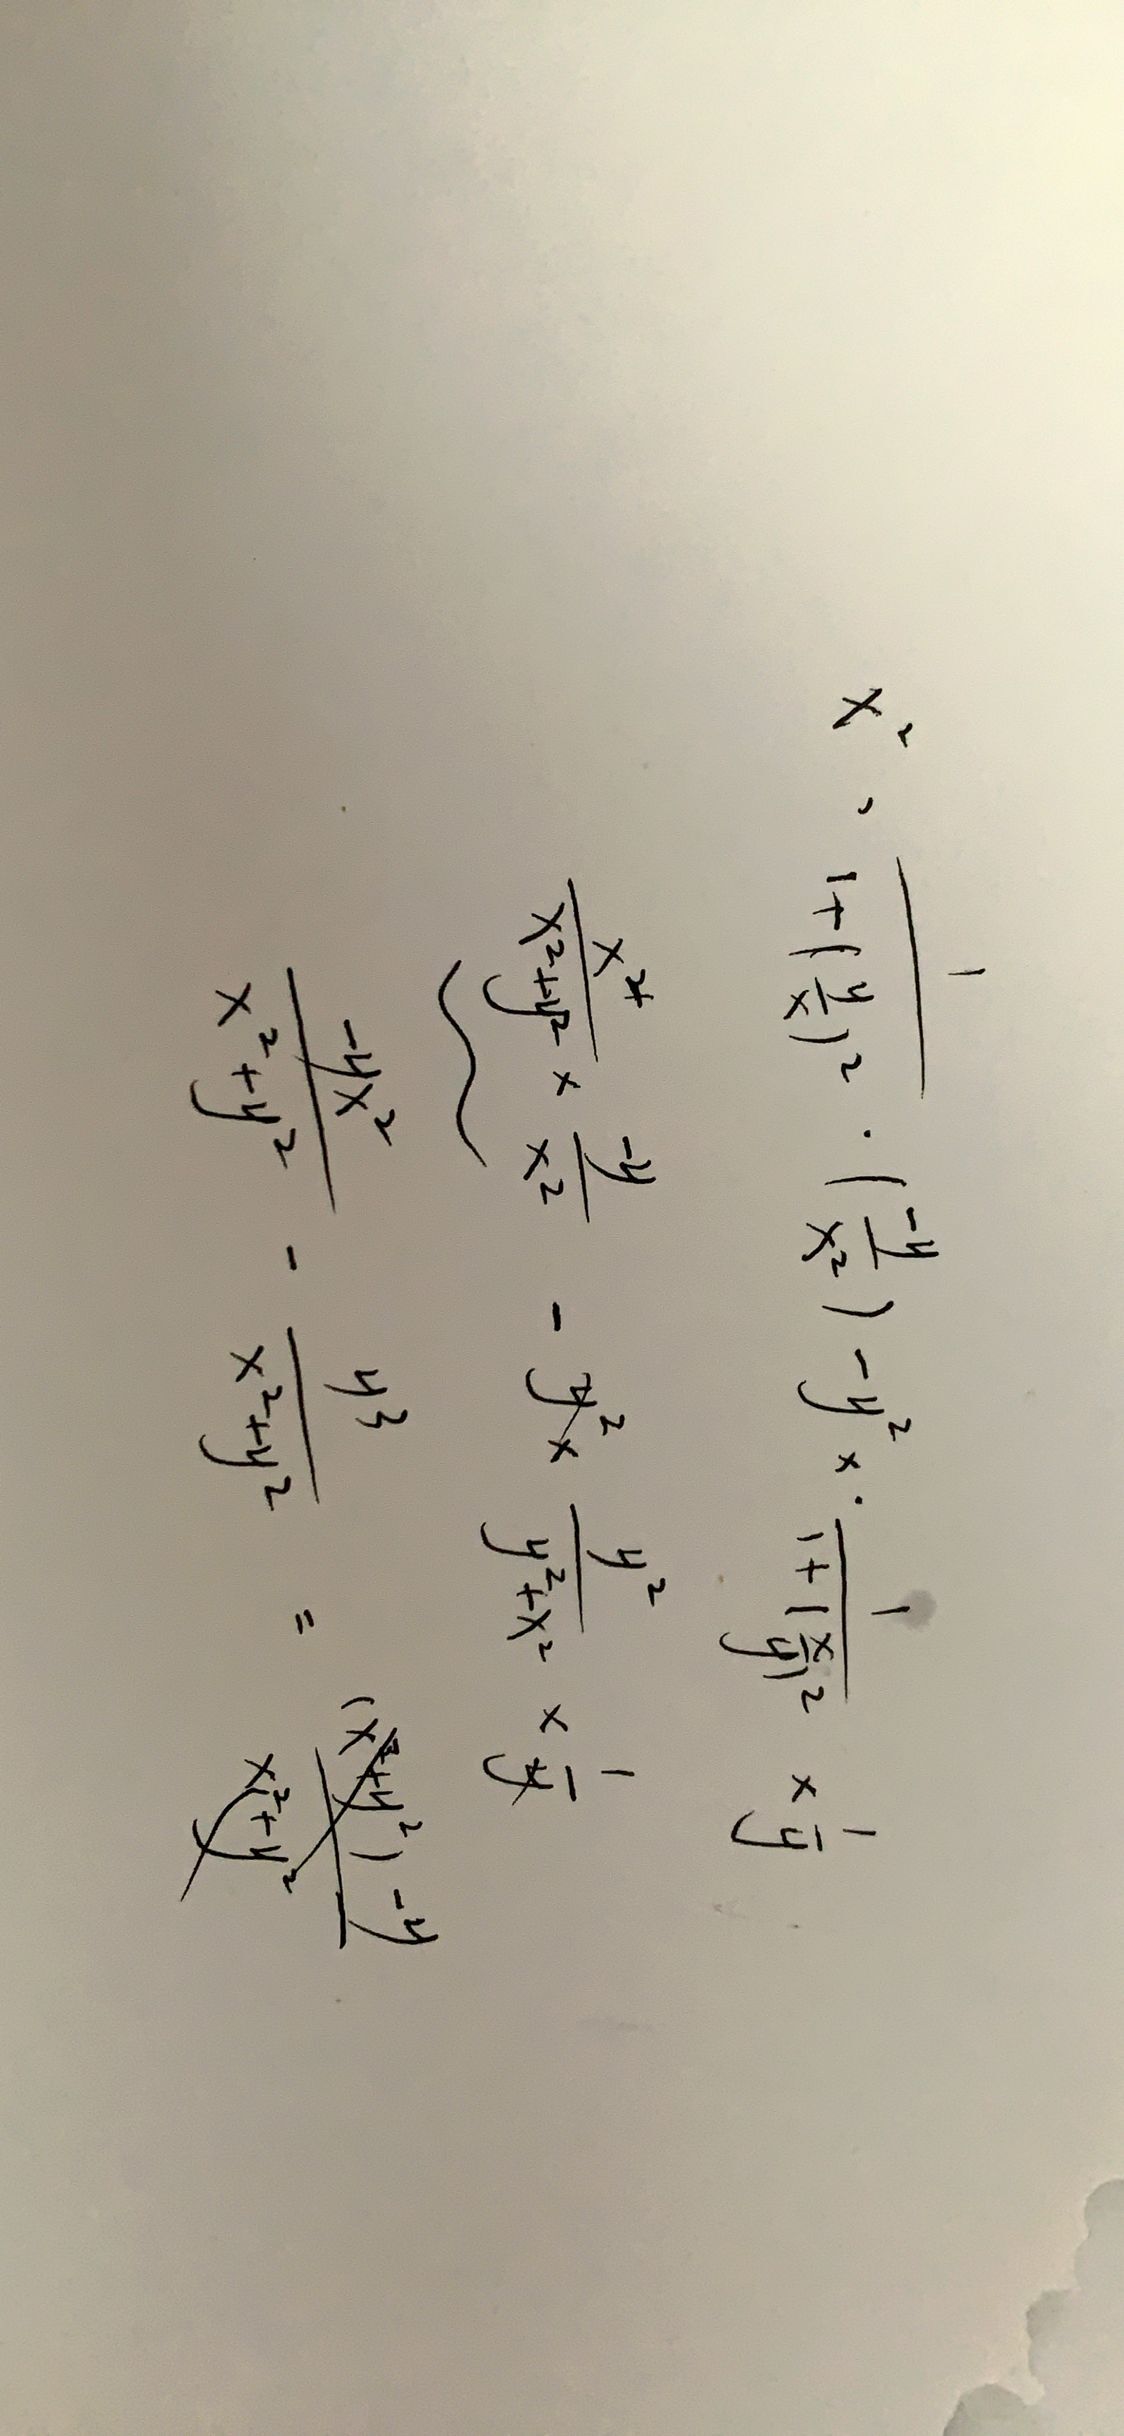 x² · 1/(1+(y/x)²) · (-y/x²) - y² × · 1/(1+(x/y)²) × 1/y
x⁴/(x²+y²) × -y/x² - y² × y²/(y²+x²) × 1/y
-yx²/(x²+y²) - y³/(x²+y²) = (x²+y²)-y/(x²+y²)